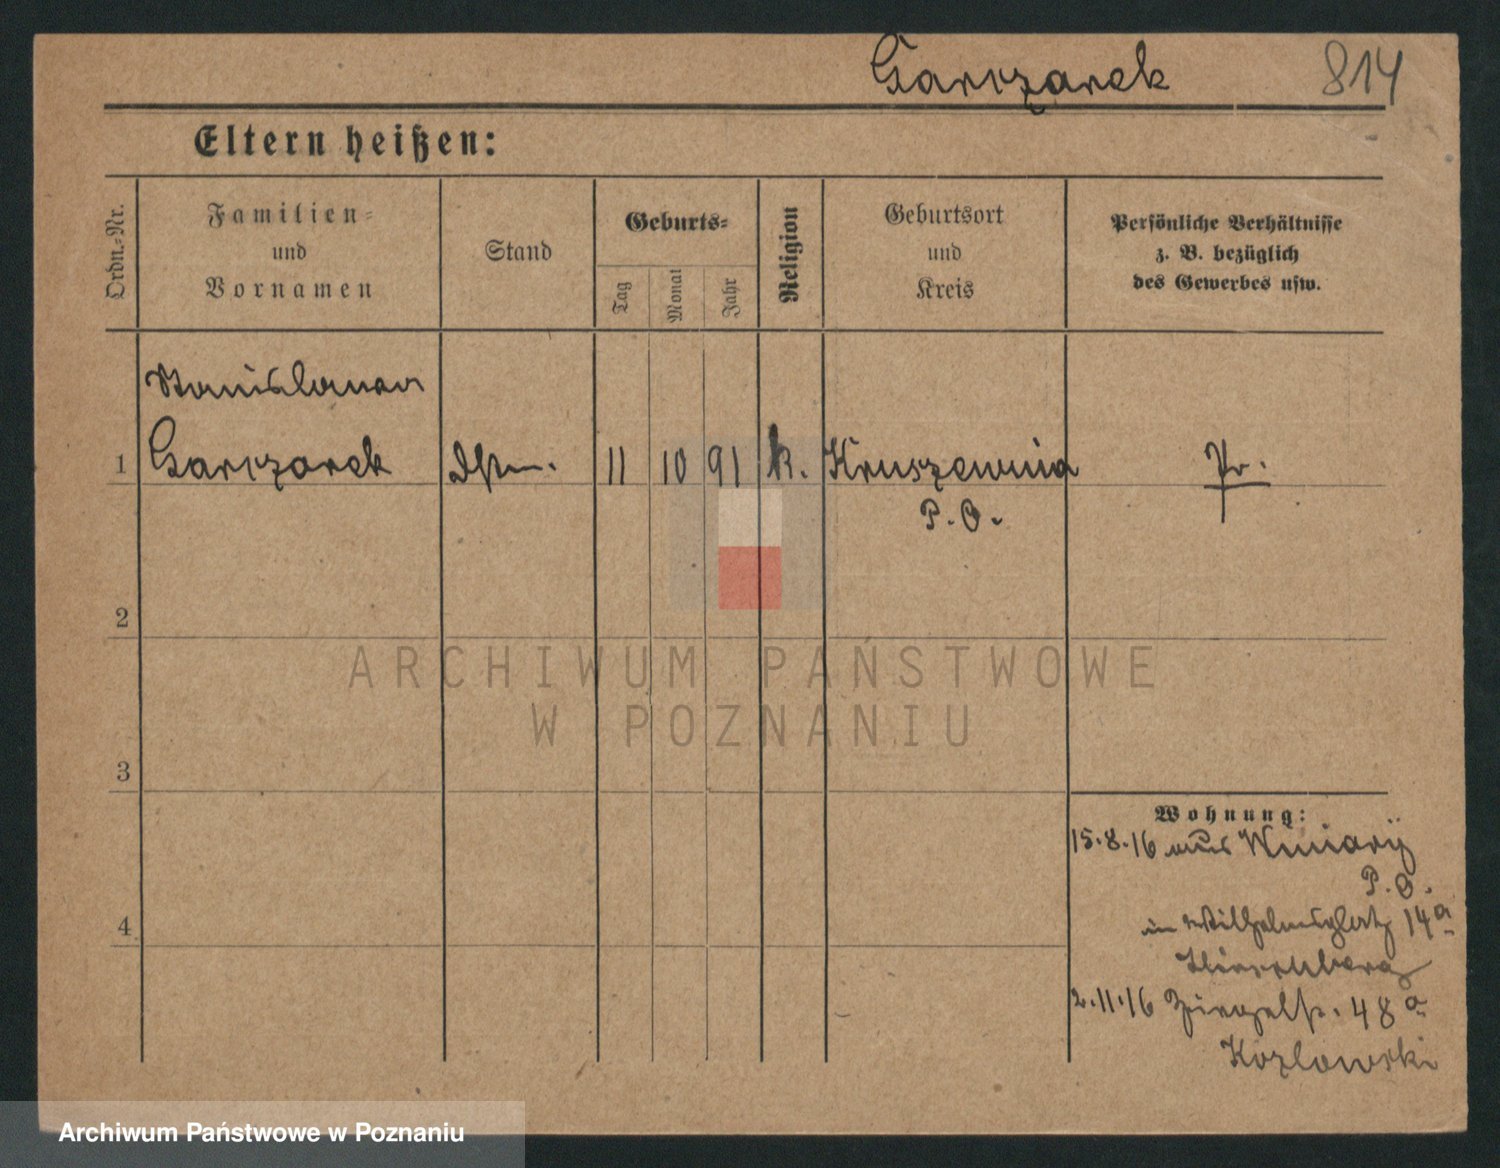 Garczarek 814
Eltern heißen:
Ordn.=Nr.
Familien=
und
Vornamen
Stand
Geburts=
Tag
Monat
Jahr
Religion
Geburtsort
und
Kreis
Persönliche Verhältnisse
z. B. bezüglich
des Gewerbes usw.
Stanislawa
1 Garczarek 11 10 91 k. Kruszewnia Pr.
P. O.
2
3
4
Wohnung:
15.8.16 aus Winiary
P. O.
in Wilhelmsplatz 14a
2.11.16 Ziegelstr. 48a
Kozlowski
ARCHIWUM PAŃSTWOWE
W POZNANIU
Archiwum Państwowe w Poznaniu